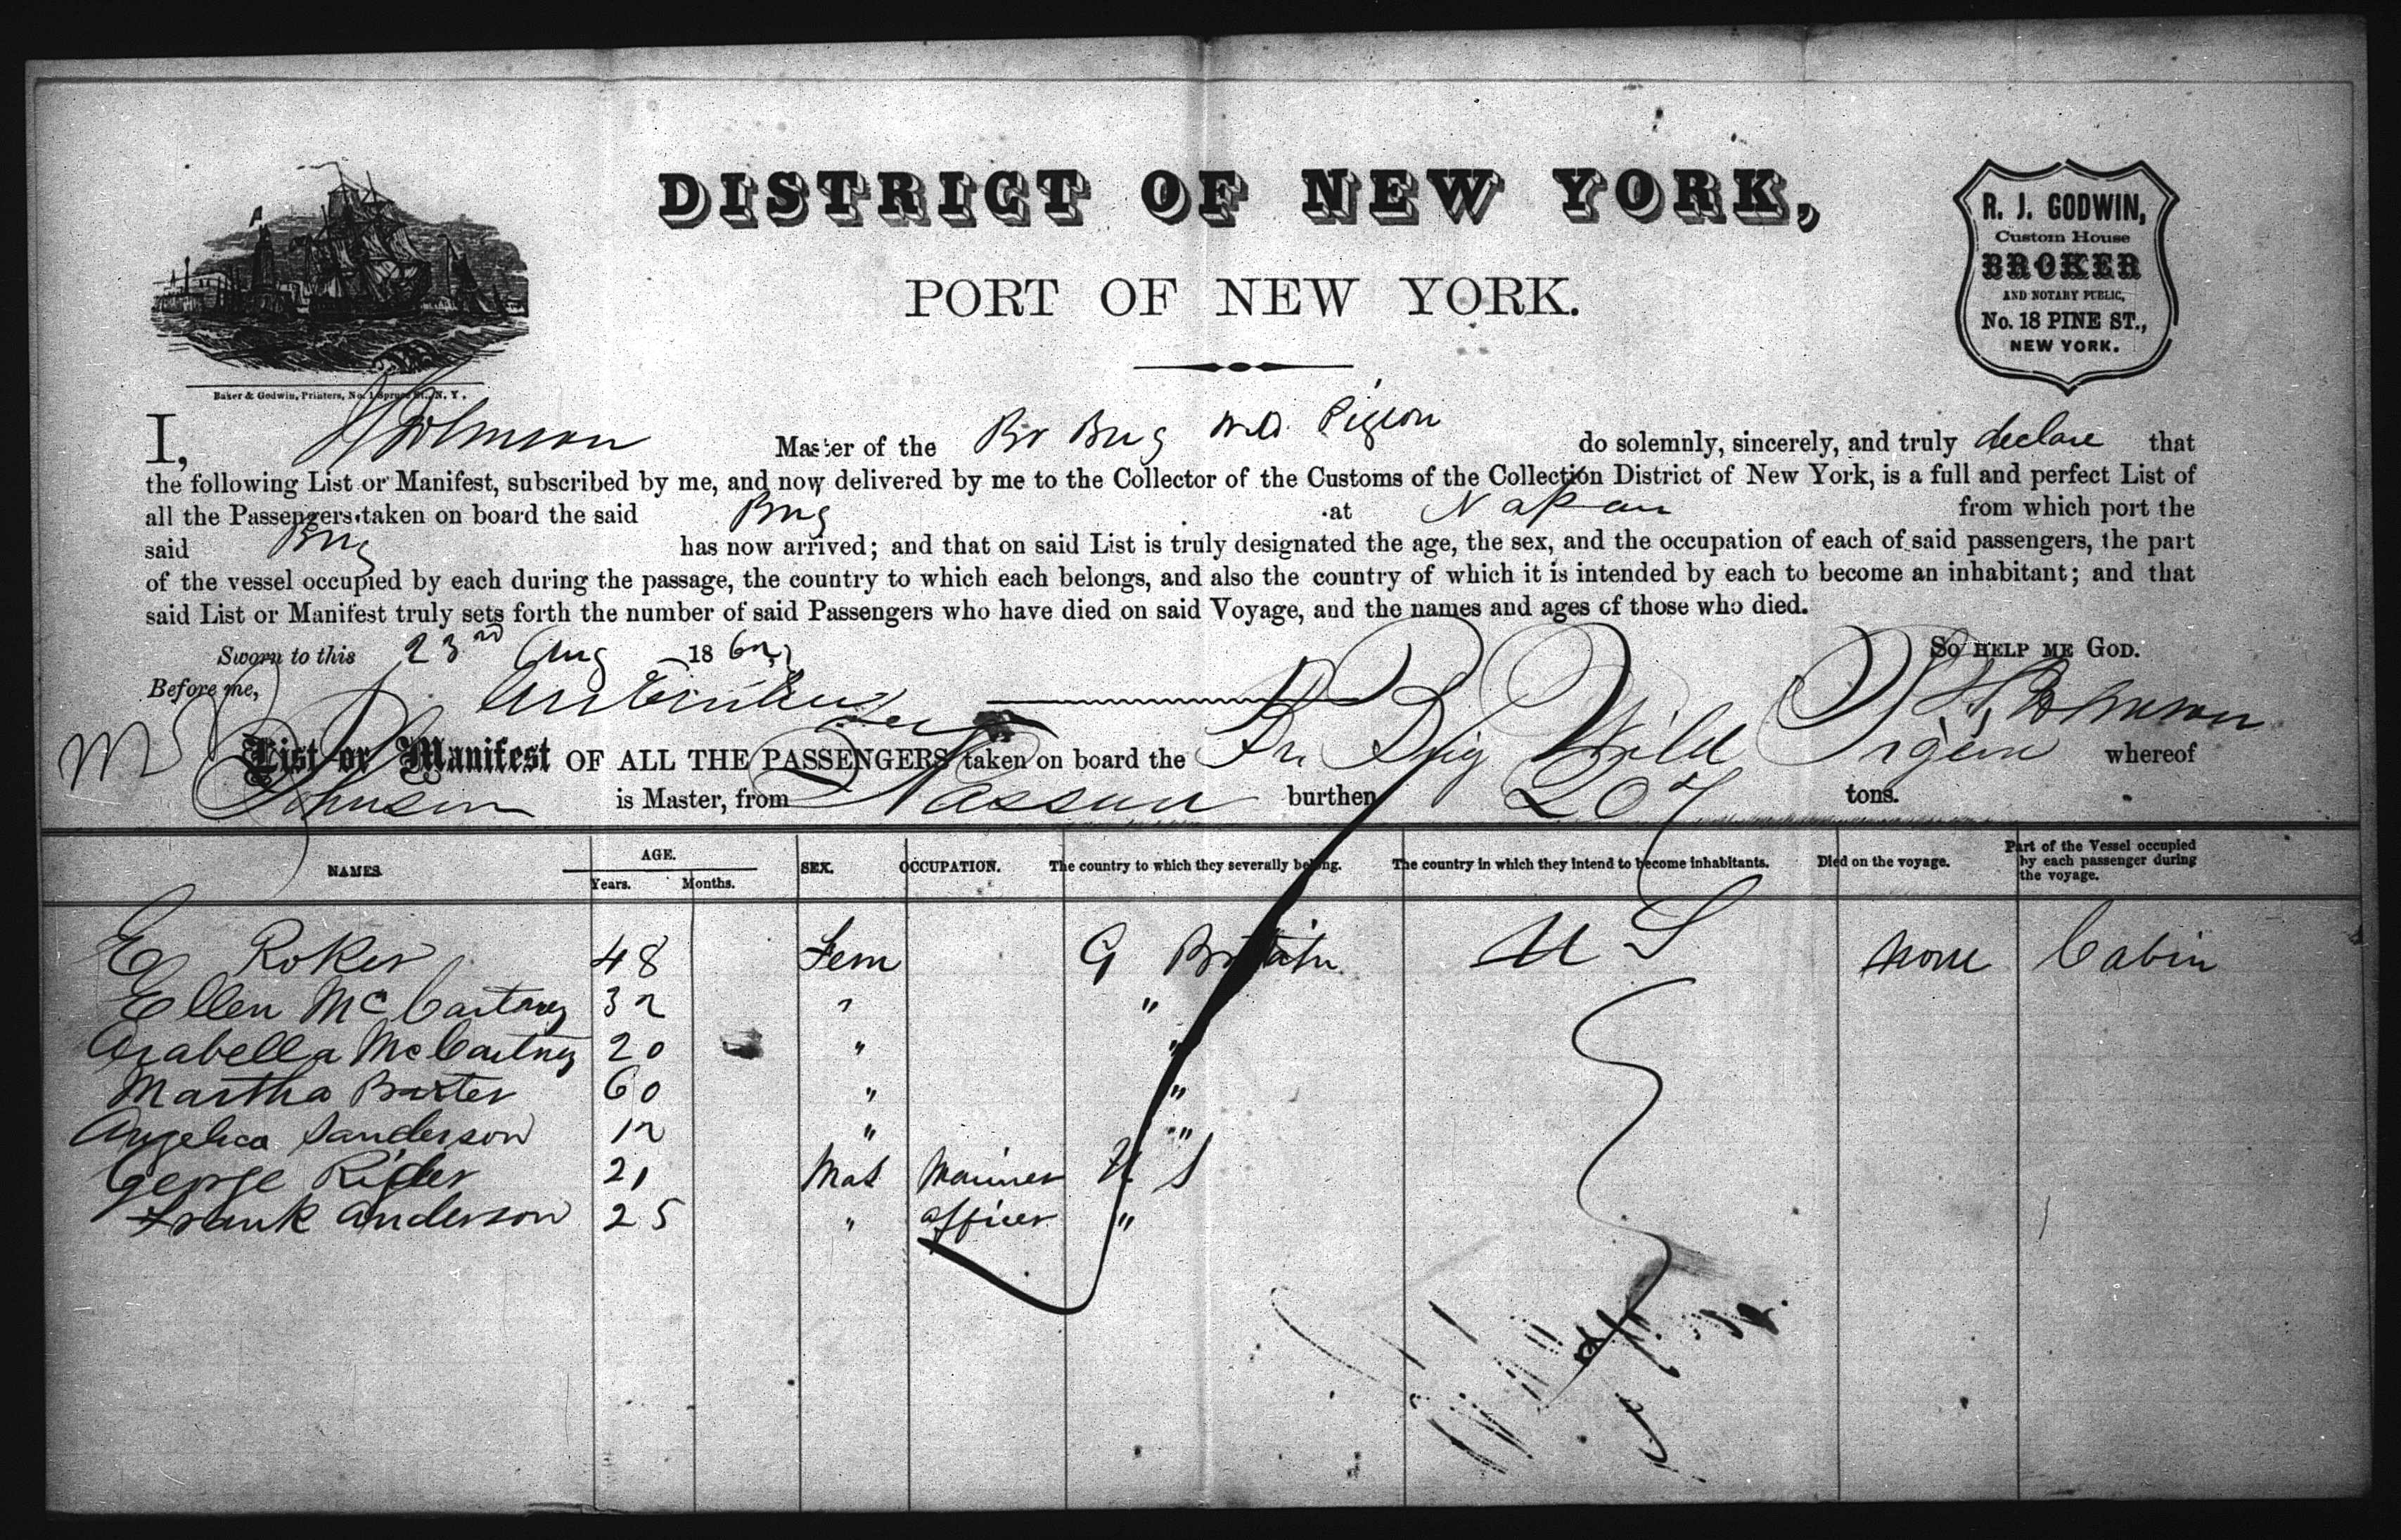 DISTRICT OF NEW YORK,
PORT OF NEW YORK.
R. J. GODWIN,
Custom House
BROKER
AND NOTARY PUBLIC,
No. 18 PINE ST.,
NEW YORK.
Baker & Godwin, Printers, No. 1 Spruce St., N. Y.
I, Johnson Master of the Br Brig Wild Pigeon do solemnly, sincerely, and truly declare that
the following List or Manifest, subscribed by me, and now delivered by me to the Collector of the Customs of the Collection District of New York, is a full and perfect List of
all the Passengers taken on board the said Brig at Nassau from which port the
said Brig has now arrived; and that on said List is truly designated the age, the sex, and the occupation of each of said passengers, the part
of the vessel occupied by each during the passage, the country to which each belongs, and also the country of which it is intended by each to become an inhabitant; and that
said List or Manifest truly sets forth the number of said Passengers who have died on said Voyage, and the names and ages of those who died.
Sworn to this 23rd Aug 1862 SO HELP ME GOD.
Before me, Johnson
List or Manifest OF ALL THE PASSENGERS taken on board the Br Brig Wild Pigeon whereof
Johnson is Master, from Nassau burthen 207 tons.
NAMES AGE. Years. Months. SEX. OCCUPATION. The country to which they severally belong. The country in which they intend to become inhabitants. Died on the voyage. Part of the Vessel occupied by each passenger during the voyage.
E Roker 48 Fem G Britain U S None Cabin
Ellen McCartney 32 " "
Arabella McCartney 20 " "
Martha Baxter 60 " "
Angelica Sanderson 12 " "
George Rider 21 Mal Mariner U S
Frank Anderson 25 " officer "